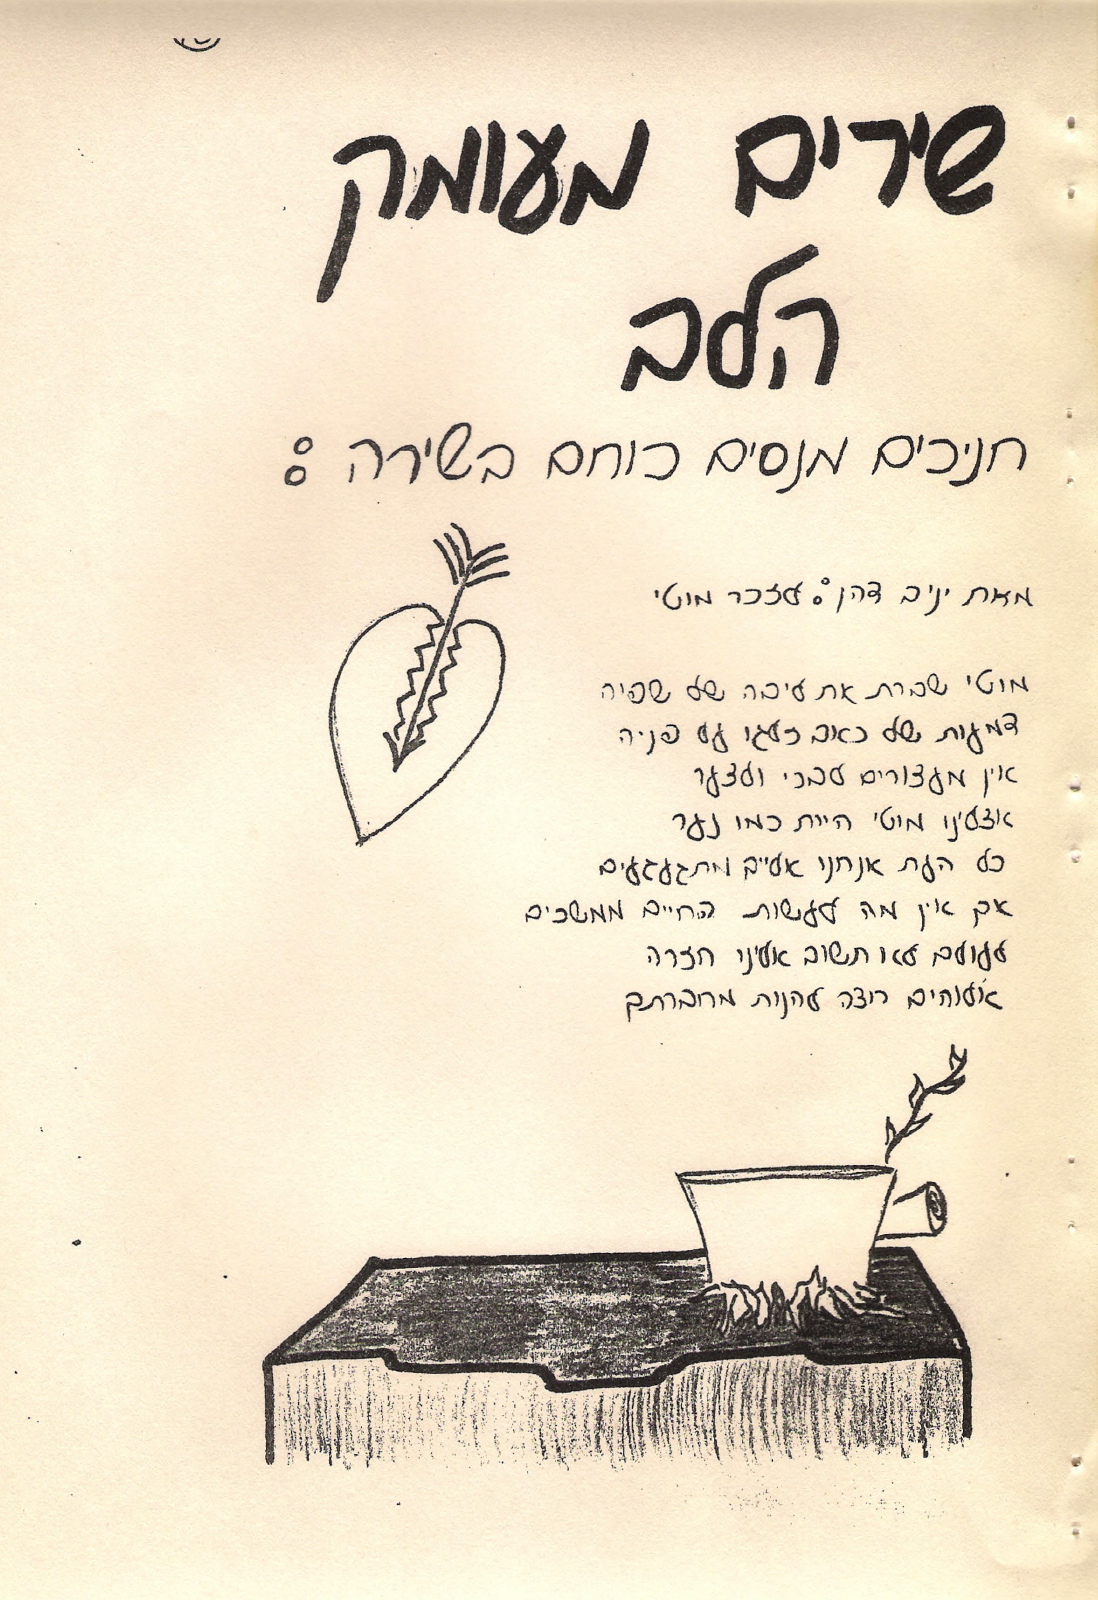 שירים מעומק
הלב
חניכים מנסים כוחם בשירה :
מאת יניב דהן : לזכר מוטי
מוטי שברת את ליבה של שפיה
דמעות של כאב זלגו על פניה
אין מעצורים לבכי ולצער
אצלינו מוטי היית כמו נער
כל העת אנחנו אלייך מתגעגעים
אך אין מה לעשות החיים ממשכים
לעולם לא תשוב אלינו חזרה
אלוהים רוצה להנות מחברתך